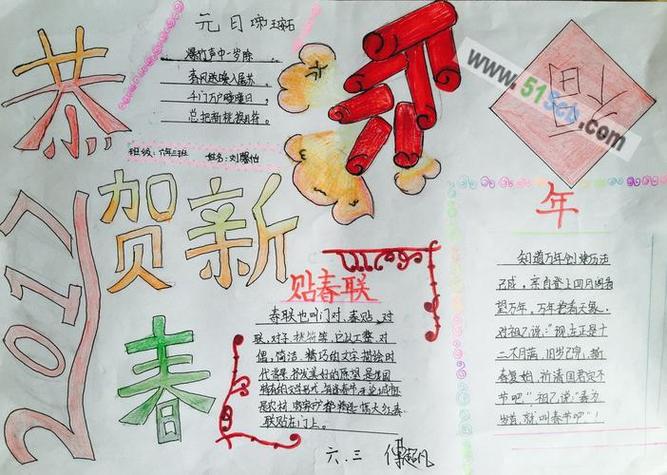 恭
贺新
春
2017
元日 王安石
爆竹声中一岁除
春风送暖入屠苏
千门万户曈曈日
总把新桃换旧符
班级:六年三班 姓名:刘
www.51
.com
贴春联
春联也叫门对、春贴、对
联、对子、桃符等,它以工整、对
偶、简洁、精巧的文字描绘时
代背景,抒发美好的愿望,是我国
特有的文学形式。每逢春节,无论城市
是农村,家家户户都要
联贴在门上。
六.三
年
知道万年创建历法
已成,亲自登上日月阁看
望万年。万年指着天象,
对祖乙说:"现在正是十
二个月满,旧岁已完,新
春复始,祈请国君定个
节吧"祖乙说:"春为
岁首,就叫春节吧"!